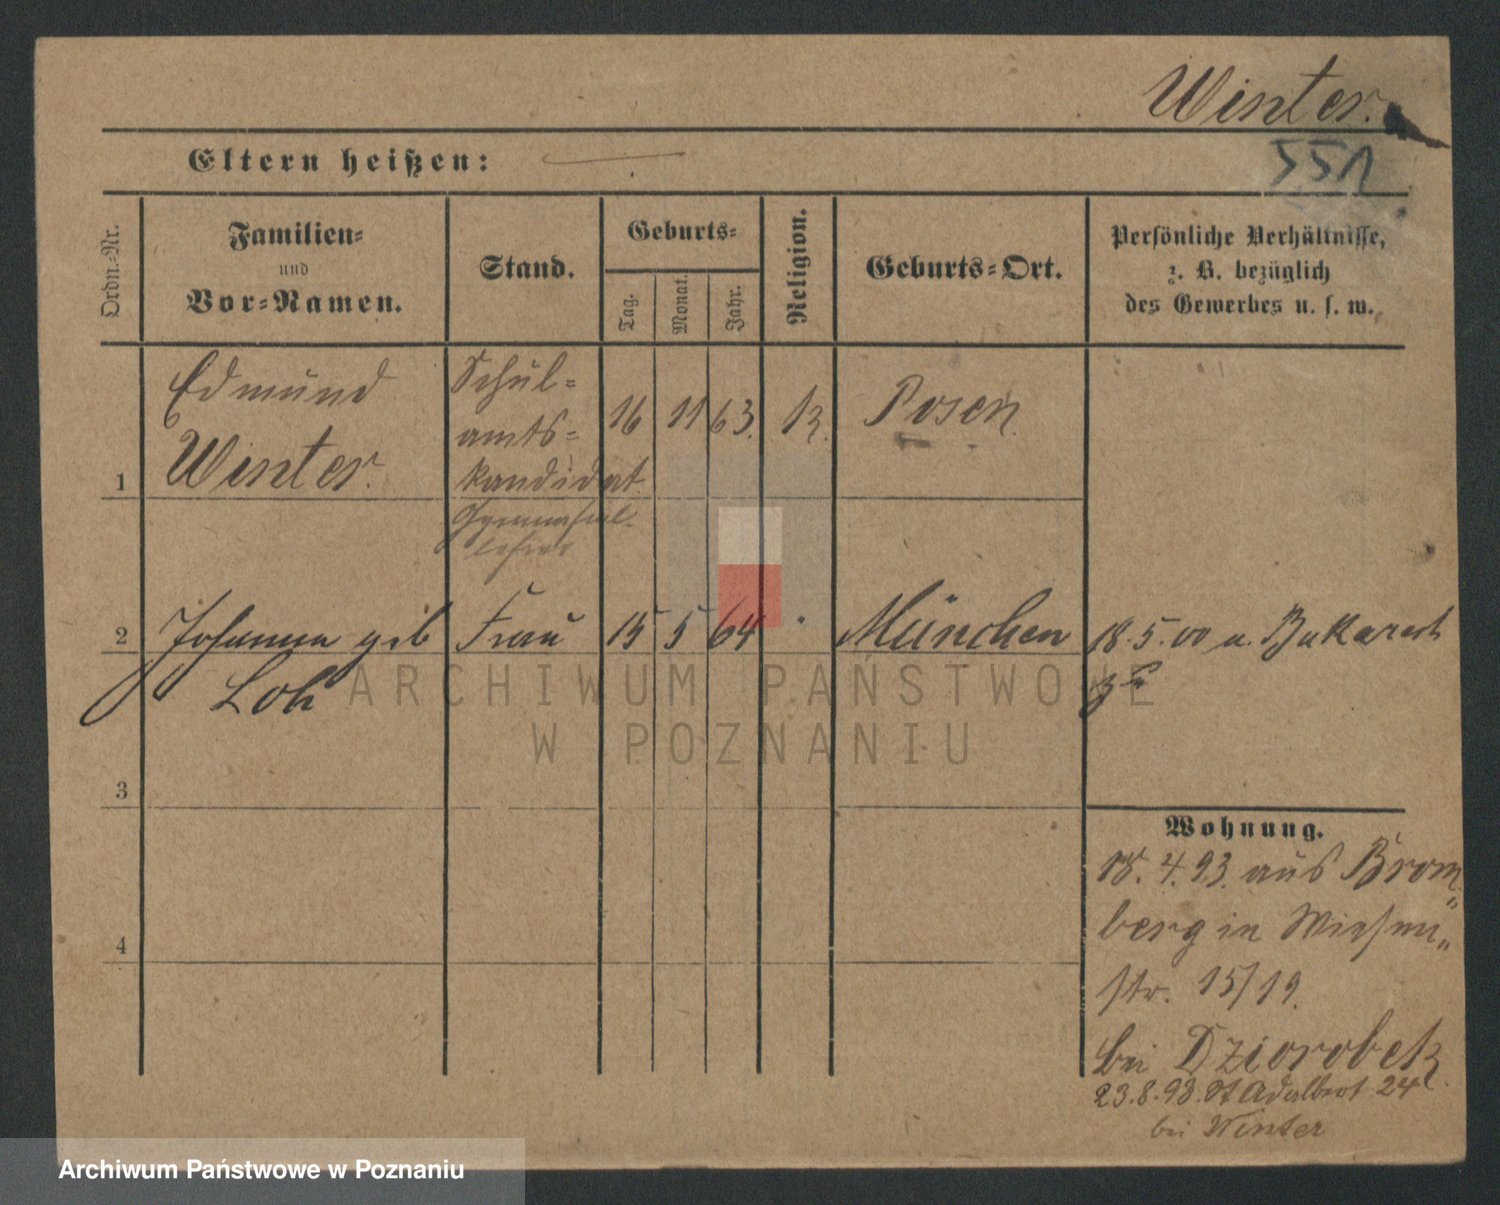 Winter.
551
Eltern heißen: —
Ordn.-Nr.
Familien-
und
Vor-Namen.
Stand.
Geburts-
Tag.
Monat.
Jahr.
Religion.
Geburts-Ort.
Persönliche Verhältnisse,
z. B. bezüglich
des Gewerbes u. s. w.
1
Edmund
Winter.
Schul-
amts-
kandidat
Gymnasial-
lehrer
16
11
63.
K.
Posen
2
Johanna geb
Loh
Frau
15
5
64
"
München
18.5.00 v. Bukarest
3
4
Wohnung.
18.4.93. aus Brom
berg in Wiesen
str. 15/19.
bei Dziorobek
23.8.93. St Adalbert 24
bei Winter
ARCHIWUM PAŃSTWOWE
W POZNANIU
Archiwum Państwowe w Poznaniu